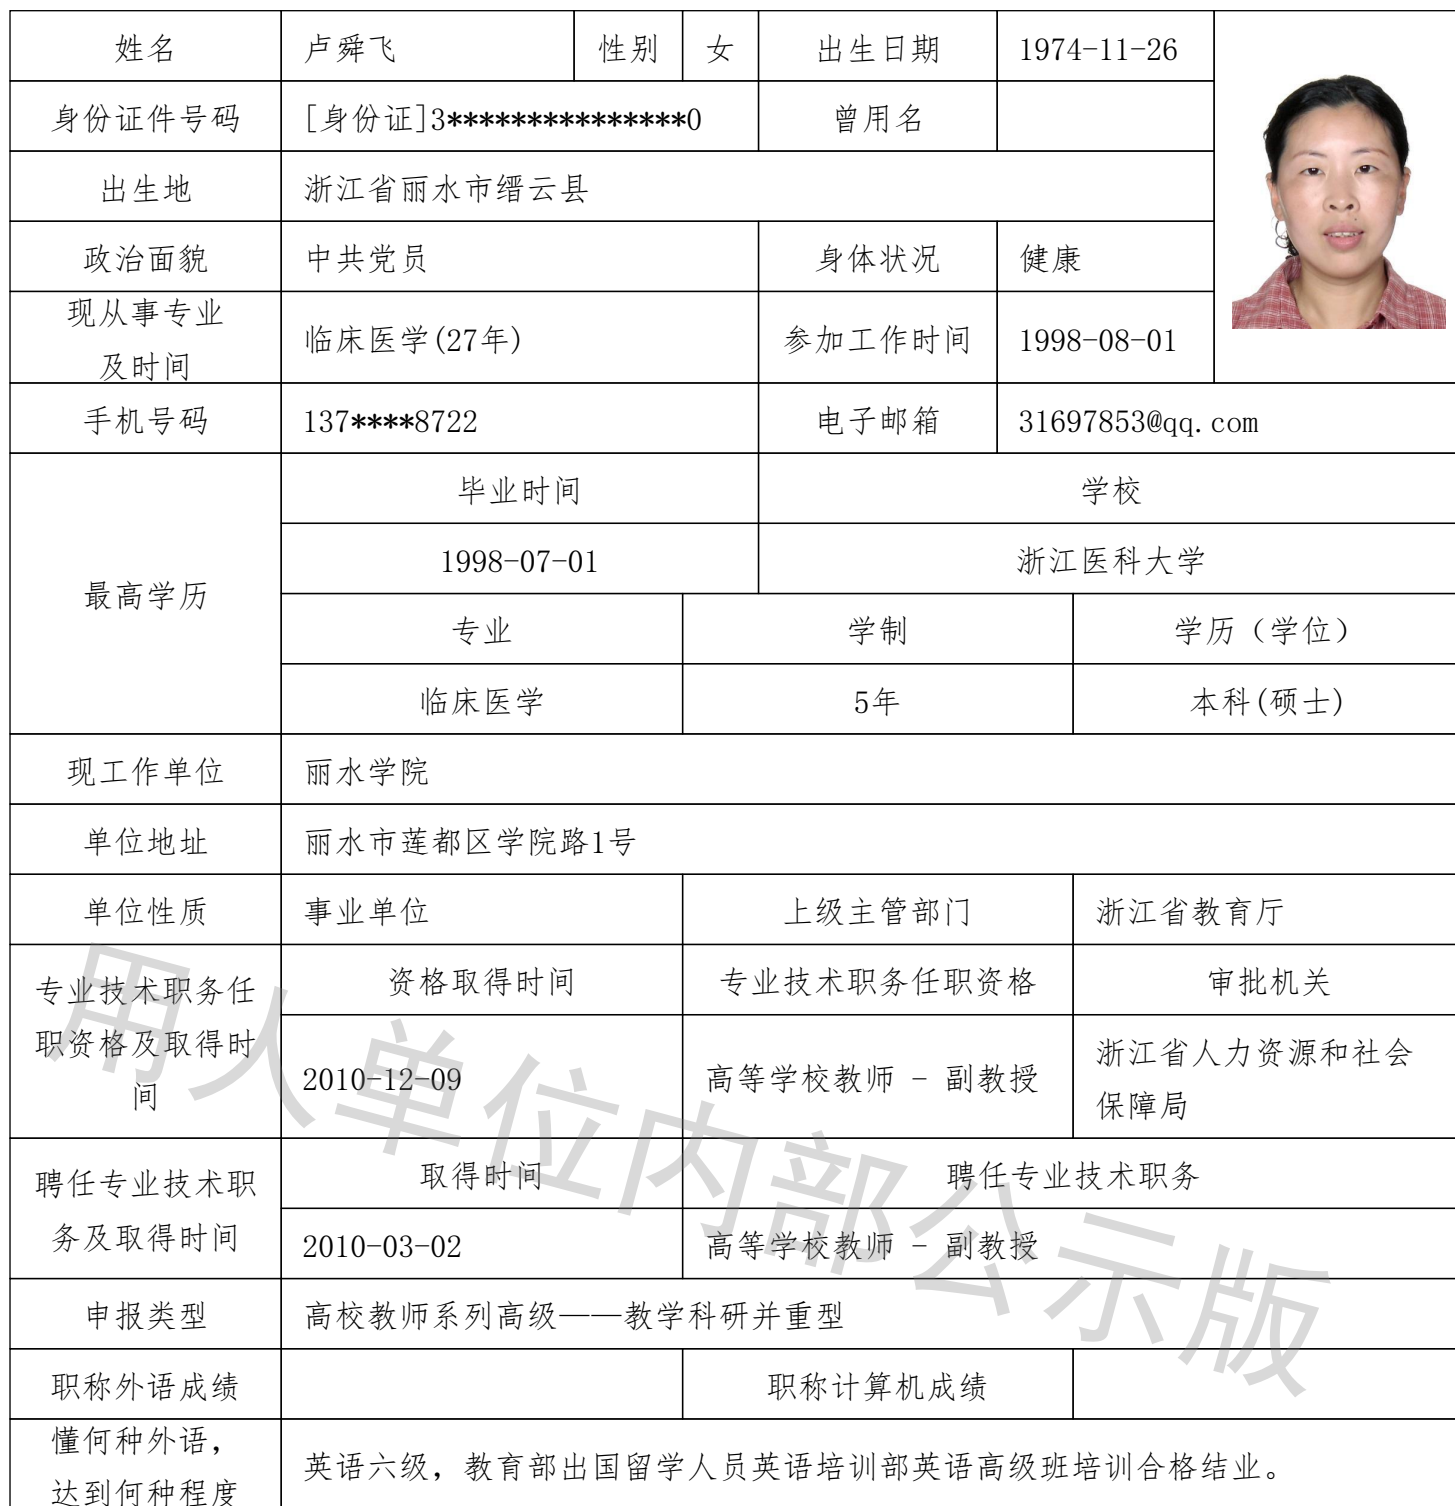 姓名 卢舜飞 性别 女 出生日期 1974-11-26
身份证件号码 [身份证]3***************0 曾用名
出生地 浙江省丽水市缙云县
政治面貌 中共党员 身体状况 健康
现从事专业
及时间
临床医学(27年) 参加工作时间 1998-08-01
手机号码 137****8722 电子邮箱 31697853@qq.com
最高学历
毕业时间 学校
1998-07-01 浙江医科大学
专业 学制 学历（学位）
临床医学 5年 本科(硕士)
现工作单位 丽水学院
单位地址 丽水市莲都区学院路1号
单位性质 事业单位 上级主管部门 浙江省教育厅
专业技术职务任
职资格及取得时
间
资格取得时间 专业技术职务任职资格 审批机关
2010-12-09 高等学校教师 - 副教授 浙江省人力资源和社会
保障局
聘任专业技术职
务及取得时间
取得时间 聘任专业技术职务
2010-03-02 高等学校教师 - 副教授
申报类型 高校教师系列高级——教学科研并重型
职称外语成绩 职称计算机成绩
懂何种外语，
达到何种程度
英语六级，教育部出国留学人员英语培训部英语高级班培训合格结业。
用人单位内部公示版